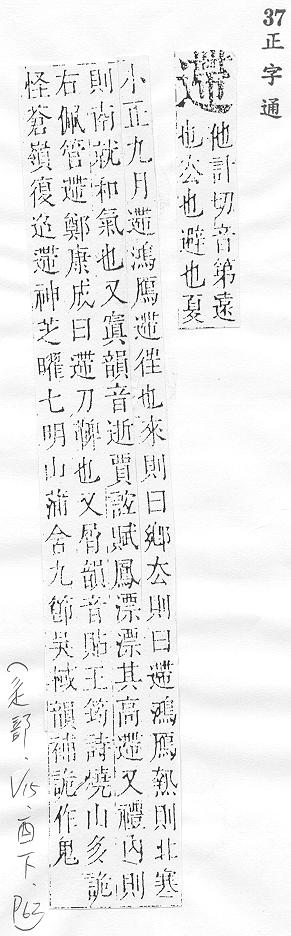 37 正字通
遰
他計切音第遠
也厺也避也夏
小正九月遰鴻鴈遰徃也來則曰鄉厺則曰遰鴻鴈熱則北寒
則南就和氣也又寘韻音逝賈誼賦鳳漂漂其高遰又禮內則
右佩管遰鄭康成曰遰刀鞞也又屑韻音貼王筠詩燒山多詭
怪蒼嶺復迢遰神芝曜七明山蒲舍九節吳棫韻補詭作鬼
(辵部.V15.酉下.P62)